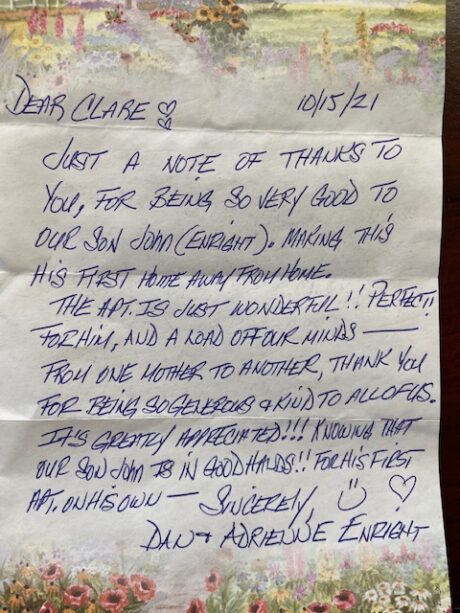 DEAR CLARE ♡♡ 10/15/21
JUST A NOTE OF THANKS TO
YOU, FOR BEING SO VERY GOOD TO
OUR SON JOHN (ENRIGHT). MAKING THIS
HIS FIRST HOME AWAY FROM HOME.
THE APT. IS JUST WONDERFUL!! PERFECT!!
FOR HIM, AND A LOAD OFF OUR MINDS —
FROM ONE MOTHER TO ANOTHER, THANK YOU
FOR BEING SO GENEROUS & KIND TO ALL OF US.
IT'S GREATLY APPRECIATED!!! KNOWING THAT
OUR SON JOHN IS IN GOOD HANDS!! FOR HIS FIRST
APT. ON HIS OWN — SINCERELY, ☺ ♡
DAN & ADRIENNE ENRIGHT